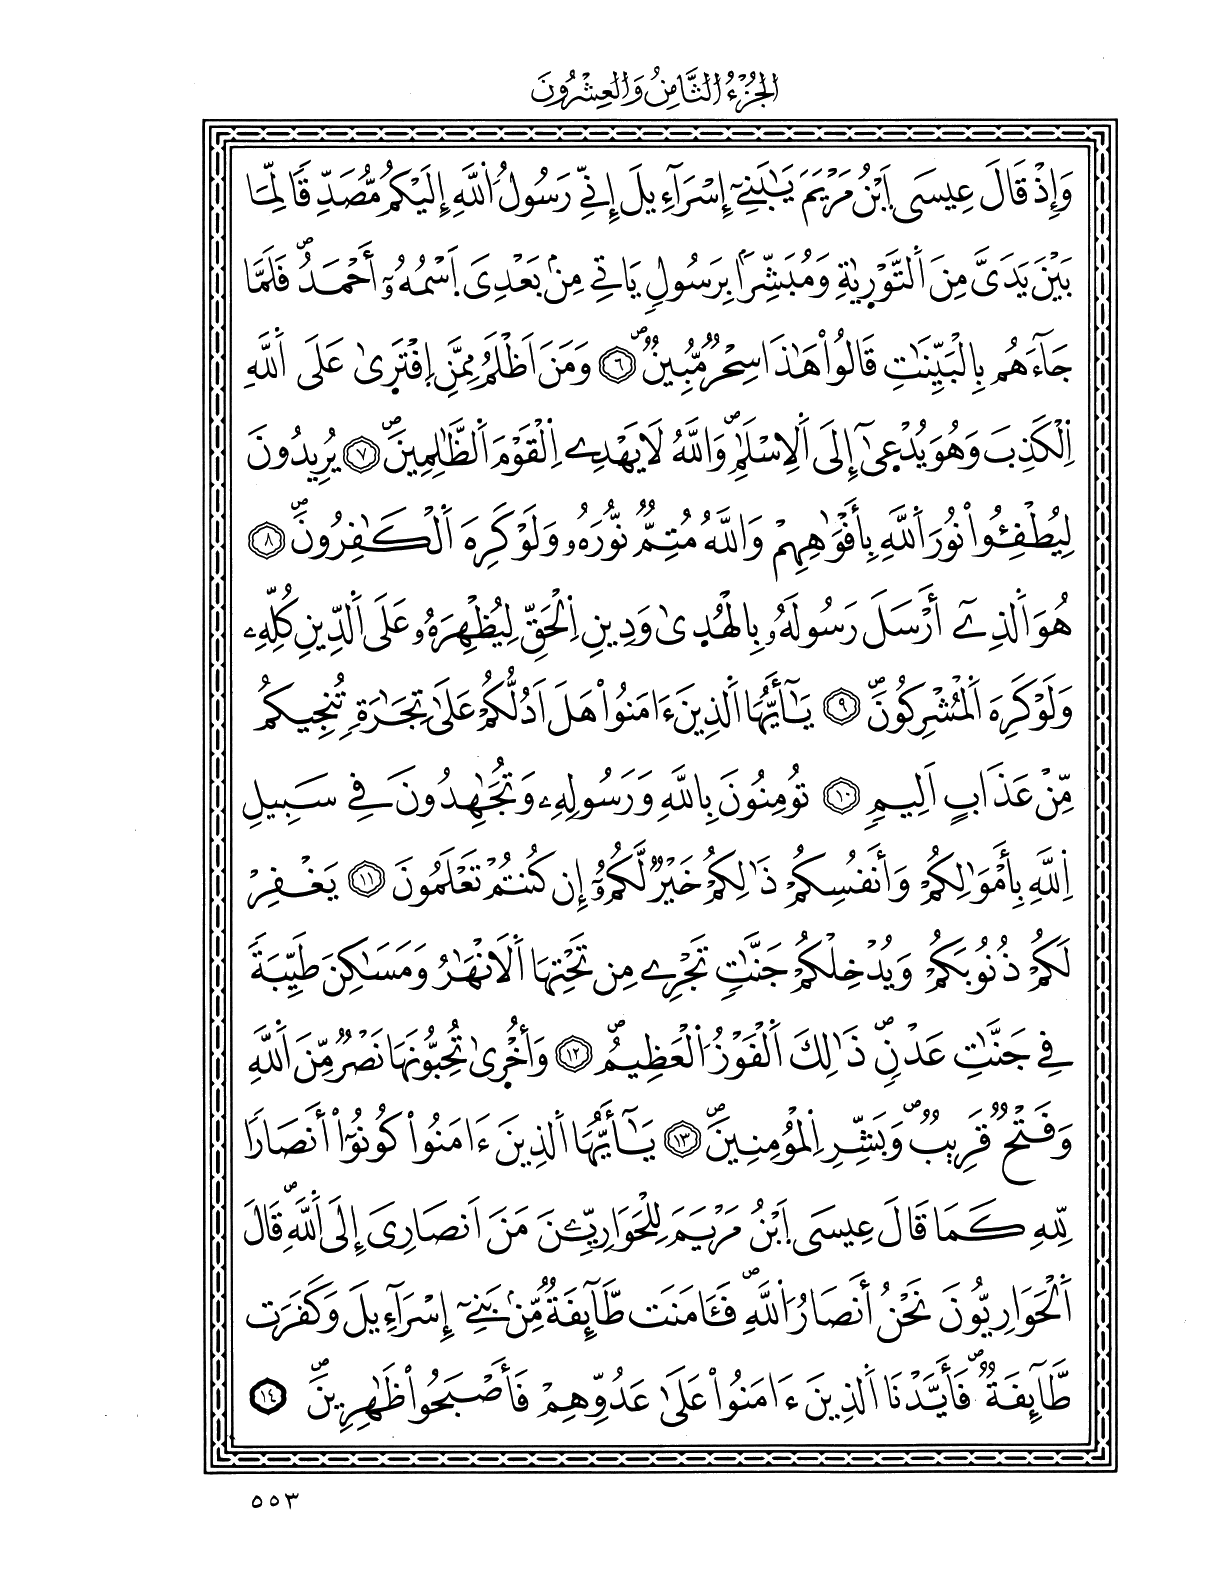 الجُزْءُ الثَّامِنُ وَالْعِشْرُونَ
وَإِذْ قَالَ عِيسَى اَبْنُ مَرْيَمَ يَٰبَنِےٓ إِسْرَآءِيلَ إِنِّے رَسُولُ اُللَّهِ إِلَيْكُم مُّصَدِّقاٗ لِّمَا
بَيْنَ يَدَيَّ مِنَ اَلتَّوْر۪يٰةِ وَمُبَشِّراَۢ بِرَسُولٖ يَاتِے مِنۢ بَعْدِيَ اَسْمُهُۥٓ أَحْمَدُۖ فَلَمَّا
جَآءَهُم بِالْبَيِّنَٰتِ قَالُواْ هَٰذَا سِحْرٞ مُّبِينٞۖ ٦ وَمَنَ اَظْلَمُ مِمَّنِ اِفْتَر۪يٰ عَلَى اَللَّهِ
اِلْكَذِبَ وَهُوَ يُدْع۪يٰٓ إِلَى اَلِاسْلَٰمِۖ وَاللَّهُ لَا يَهْدِے اِلْقَوْمَ اَلظَّٰلِمِينَۖ ٧ يُرِيدُونَ
لِيُطْفِـُٔواْ نُورَ اَللَّهِ بِأَفْوَٰهِهِمْ وَاللَّهُ مُتِمّٞ نُّورَهُۥ وَلَوْ كَرِهَ اَلْكَٰفِرُونَۖ ٨
هُوَ اَلذِےٓ أَرْسَلَ رَسُولَهُۥ بِالْهُد۪يٰ وَدِينِ اِلْحَقِّ لِيُظْهِرَهُۥ عَلَى اَلدِّينِ كُلِّهِۦ
وَلَوْ كَرِهَ اَلْمُشْرِكُونَۖ ٩ يَٰٓأَيُّهَا اَلذِينَ ءَامَنُواْ هَلَ اَدُلُّكُمْ عَلَىٰ تِجَٰرَةٖ تُنجِيكُم
مِّنْ عَذَابٍ اَلِيمٖ ١٠ تُومِنُونَ بِاللَّهِ وَرَسُولِهِۦ وَتُجَٰهِدُونَ فِے سَبِيلِ
اِللَّهِ بِأَمْوَٰلِكُمْ وَأَنفُسِكُمْ ذَٰلِكُمْ خَيْرٞ لَّكُمُۥٓ إِن كُنتُمْ تَعْلَمُونَ ١١ يَغْفِرْ
لَكُمْ ذُنُوبَكُمْ وَيُدْخِلْكُمْ جَنَّٰتٖ تَجْرِے مِن تَحْتِهَا اَلَانْهَٰرُ وَمَسَٰكِنَ طَيِّبَةٗ
فِے جَنَّٰتِ عَدْنٖۖ ذَٰلِكَ اَلْفَوْزُ اُلْعَظِيمُۖ ١٢ وَأُخْر۪يٰ تُحِبُّونَهَا نَصْرٞ مِّنَ اَللَّهِ
وَفَتْحٞ قَرِيبٞۖ وَبَشِّرِ اِلْمُومِنِينَۖ ١٣ يَٰٓأَيُّهَا اَلذِينَ ءَامَنُواْ كُونُوٓاْ أَنصَاراٗ
لِّلهِ كَمَا قَالَ عِيسَى اَبْنُ مَرْيَمَ لِلْحَوَارِيِّـۧنَ مَنَ اَنصَارِيَ إِلَى اَللَّهِۖ قَالَ
اَلْحَوَارِيُّونَ نَحْنُ أَنصَارُ اُللَّهِۖ فَـَٔامَنَت طَّآئِفَةٞ مِّنۢ بَنِےٓ إِسْرَآءِيلَ وَكَفَرَت
طَّآئِفَةٞۖ فَأَيَّدْنَا اَلذِينَ ءَامَنُواْ عَلَىٰ عَدُوِّهِمْ فَأَصْبَحُواْ ظَٰهِرِينَۖ ١٤
٥٥٣